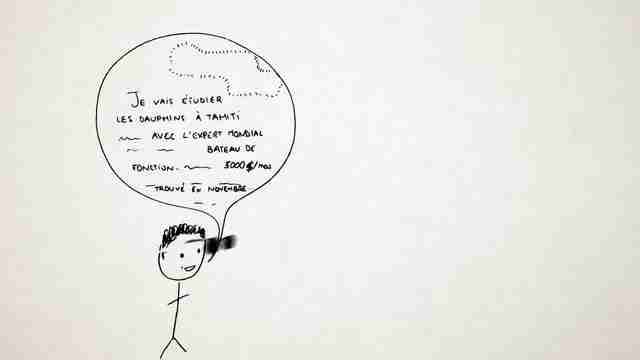 JE VAIS ÉTUDIER
LES DAUPHINS À TAHITI
AVEC L'EXPERT MONDIAL
BATEAU DE
FONCTION. 3000 $/MOIS
TROUVÉ EN NOVEMBRE